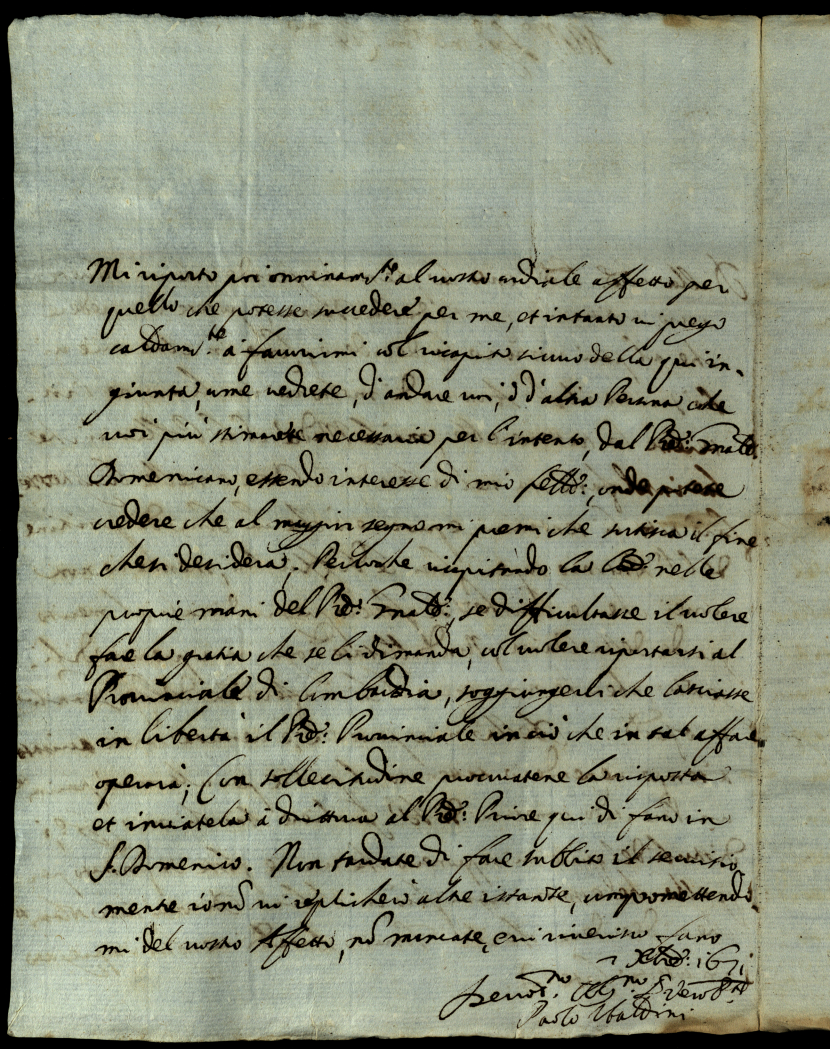 Mi riporto poi onninam.te al vostro cordiale affetto per
quello che potesse succedere per me, et intanto vi prego
caldam.te à favorirmi col ricapito sicuro della qui in-
giunta, come vedrete, d'andare voi, ò d'altra Persona che
voi più stimarete necessaria per l'intento, dal P.re Gnãle
Domenicano, essendo interesse di mio fello:, onde potete
credere che al maggior segno mi premi che sortisca il fine
che si desidera. Perloche ricapitando la nelle
proprie mani del P.re Gnãle, se difficultasse il volere
fare la gratia che se li dimanda, col volere riportarsi al
Provinciale di Lombardia, soggiungerli che lasciasse
in libertà il P.re Provinciale in ciò che in tal affare
operarà; Con sollecitudine procuratene la risposta
et inviatela à drittura al P.re Priore qui di Fano in
S. Domenico. Non tardate di fare subbito il servitio
mentre io nõ vi replicherò altre istanze, compromettendo
mi del vostro Affetto, nõ mancate, e vi riverisco Fano
7 Xbre: 1671
Paolo Ubaldini